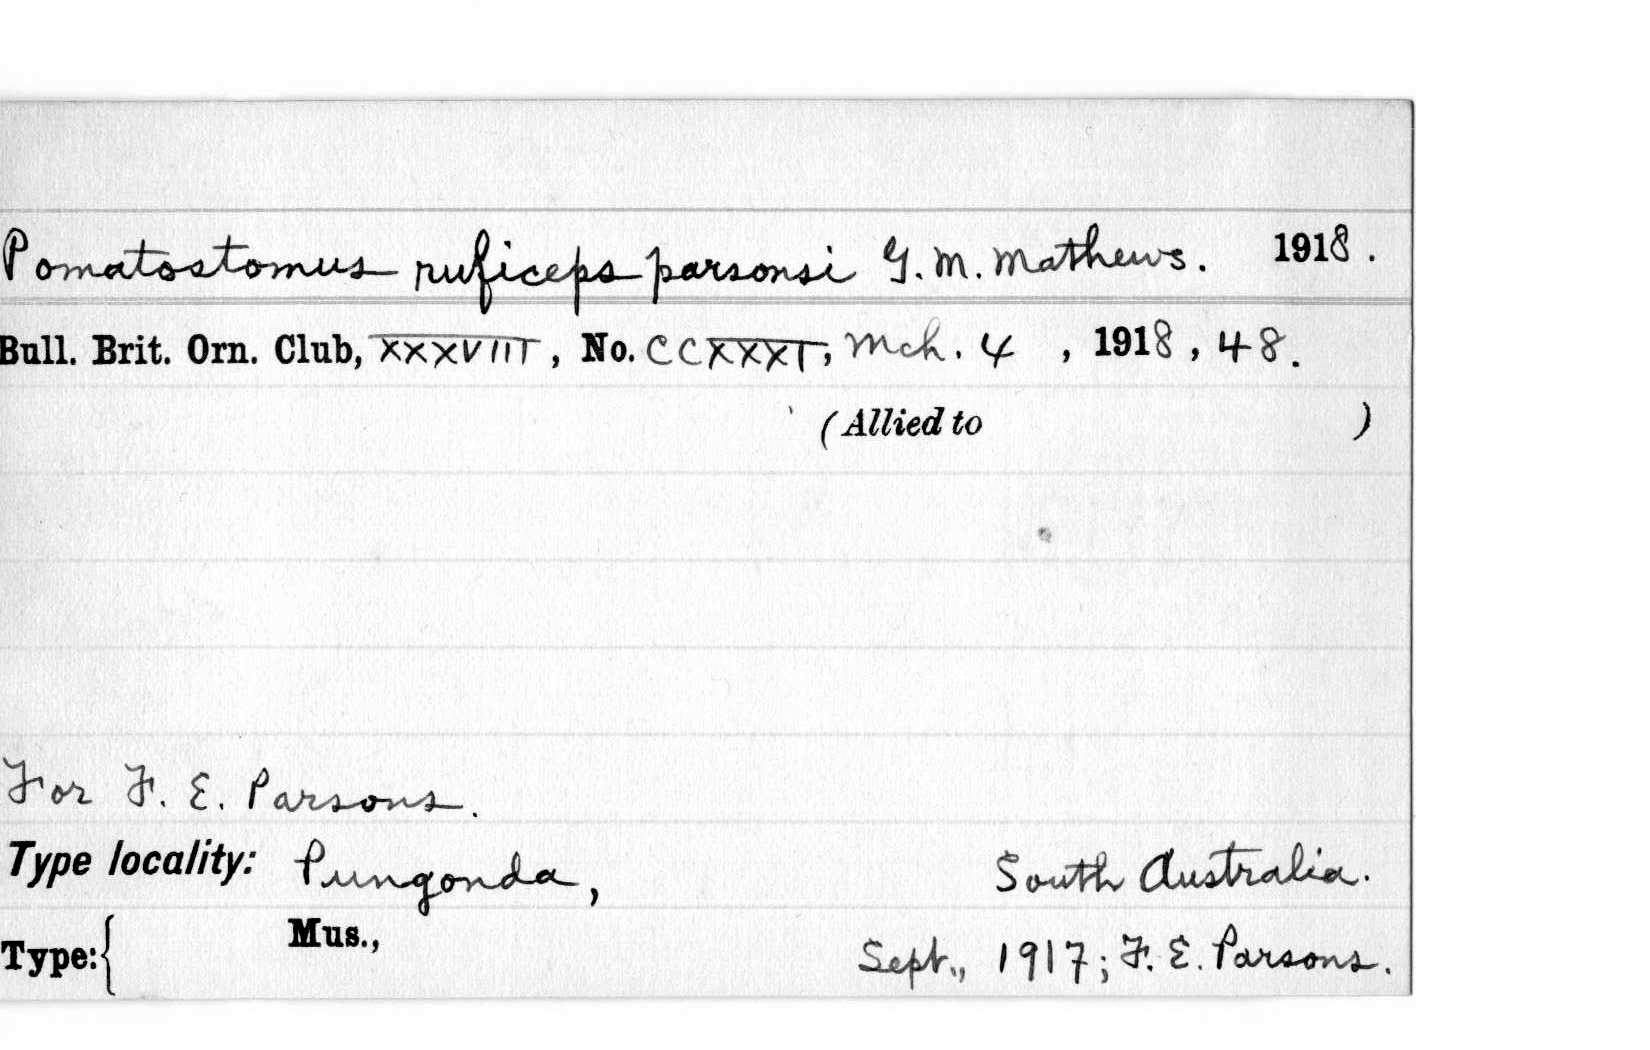 Pomatostomus ruficeps parsonsi G. M. Mathews. 1918.
Bull. Brit. Orn. Club, XXXVIII, No. CCXXXI, Mch. 4, 1918, 48.
(Allied to )
For F. E. Parsons.
Type locality: Pungonda, South Australia.
Type:{ Mus., Sept., 1917; F. E. Parsons.